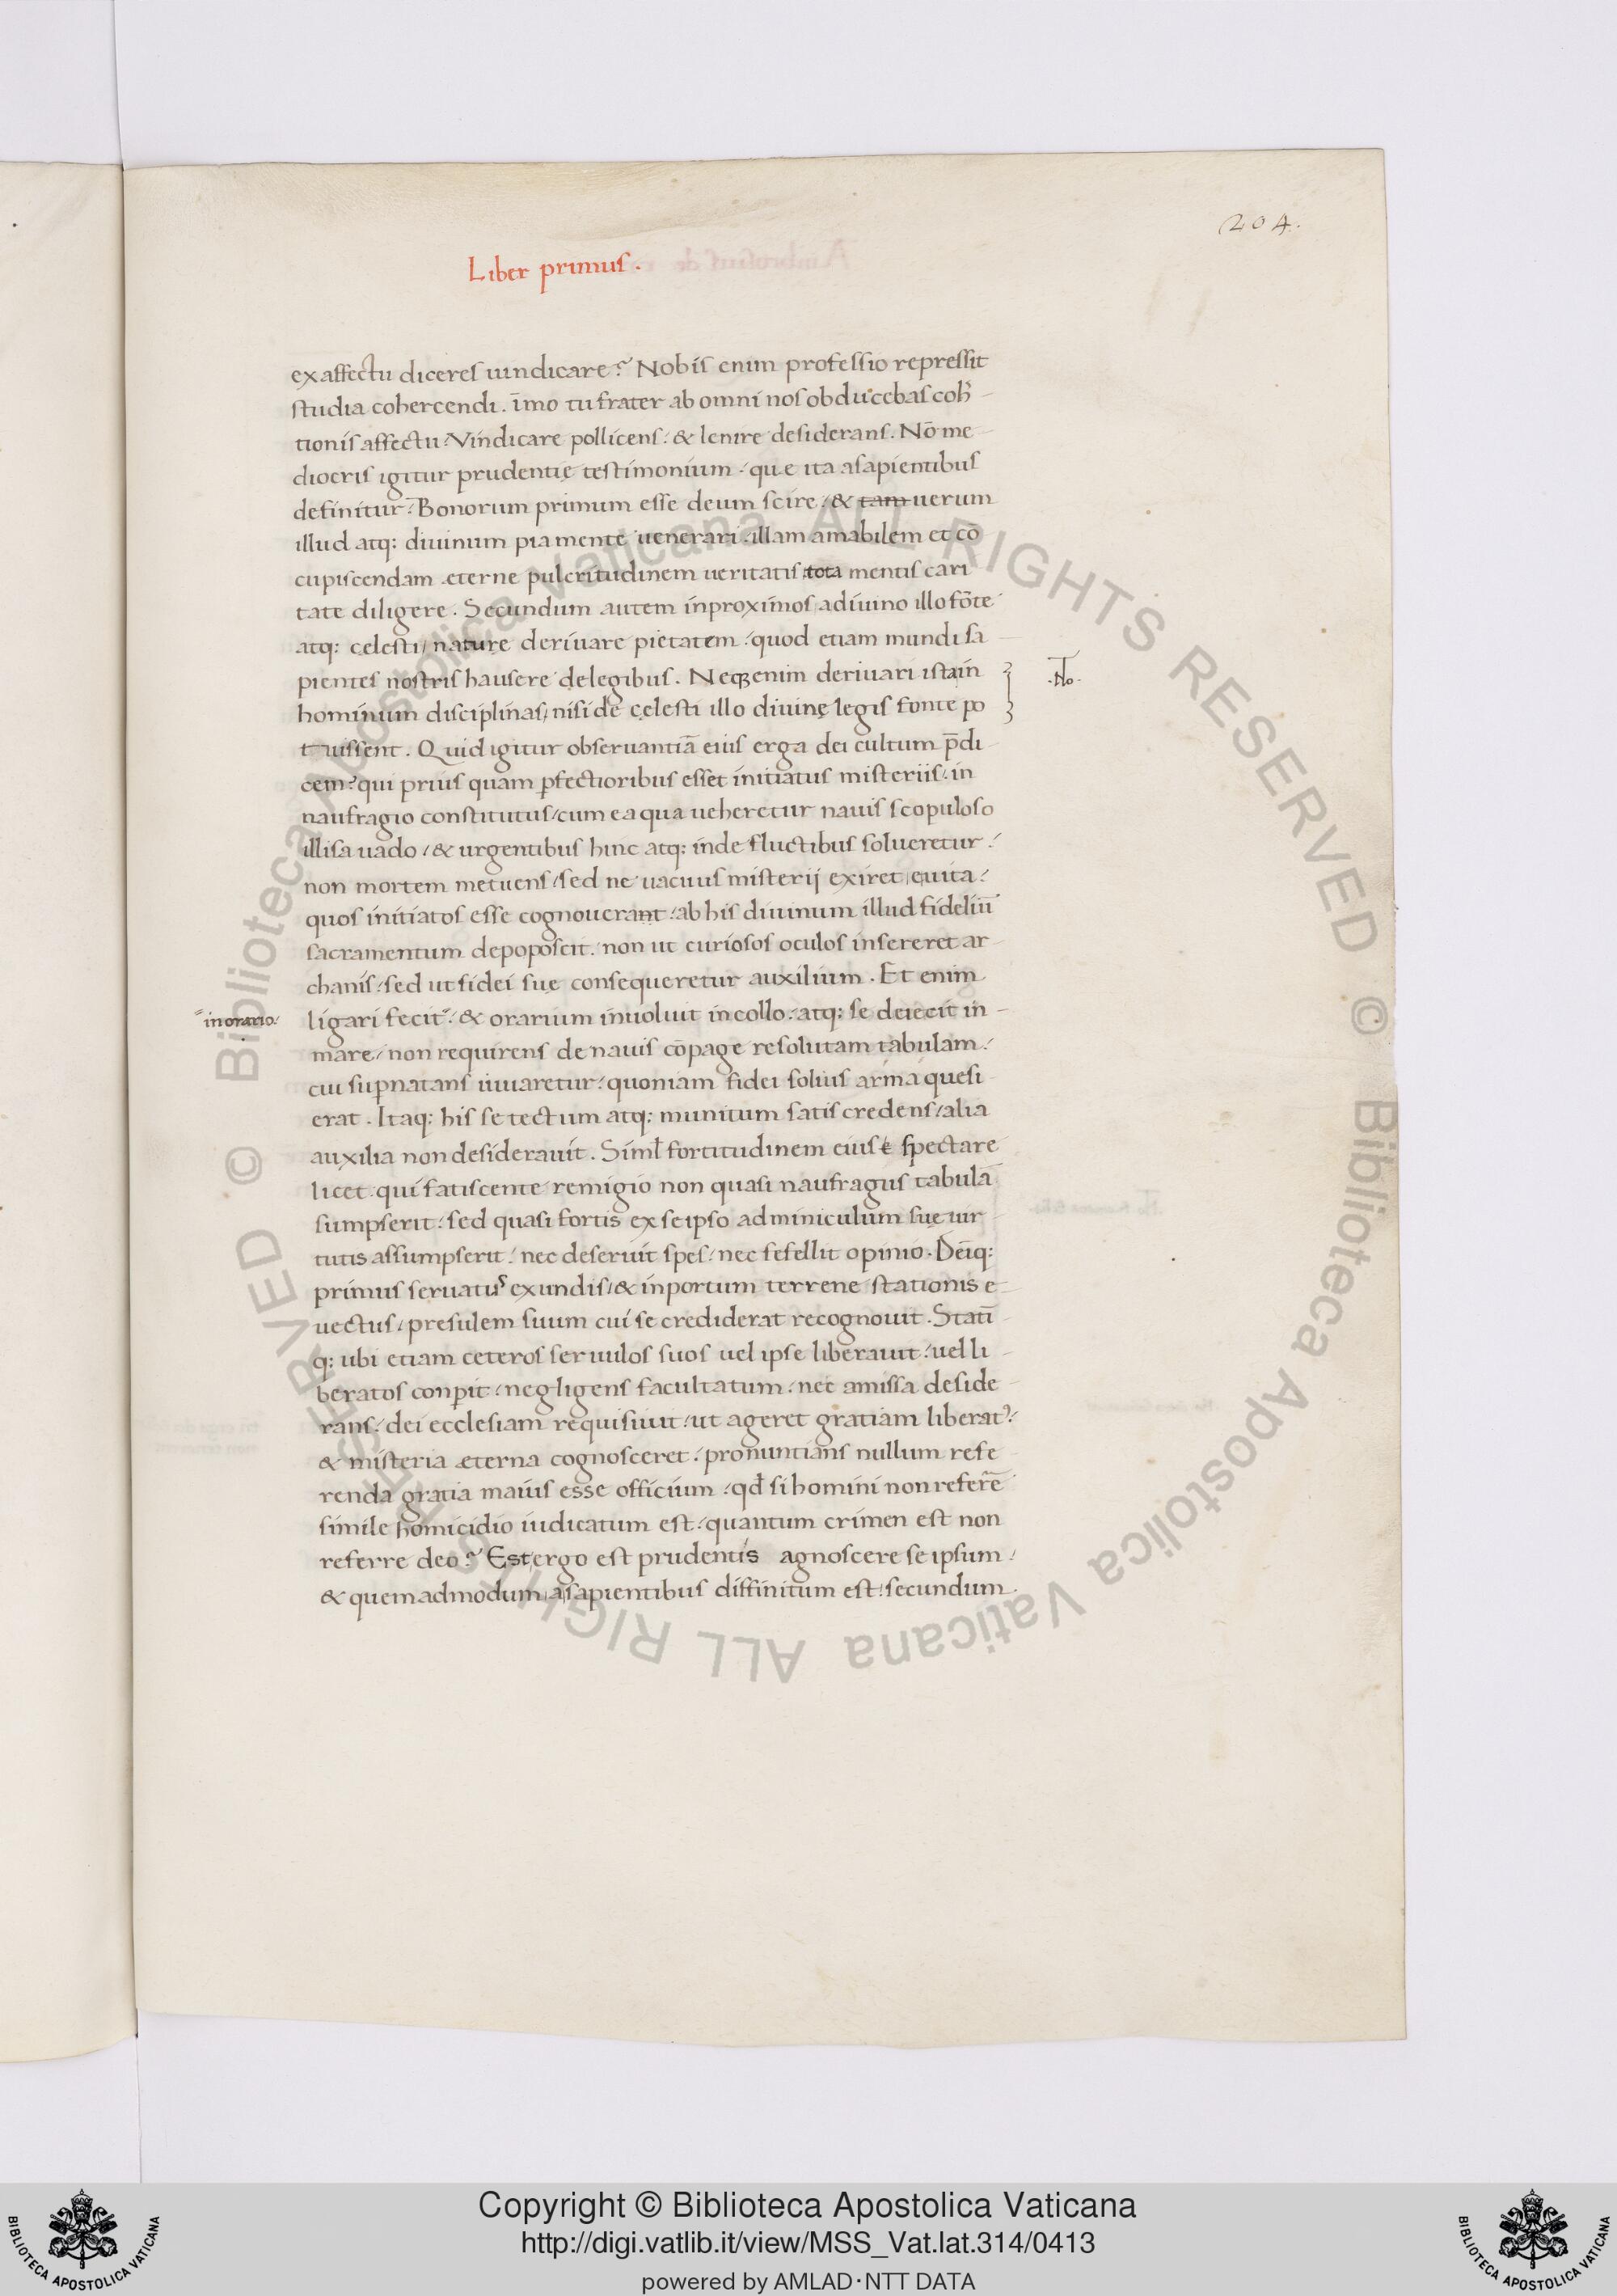 204.
Liber primus.
ex affectu diceres uindicare? Nobis enim professio repressit
studia cohercendi. īmo tu frater ab omni nos obducebas coh̓
tionis affectu. Vindicare pollicens. & lenire desiderans. Nō me
diocris igitur prudentię testimonium. que ita a sapientibus
definitur. Bonorum primum esse deum scire. & tam uerum
illud atq: diuinum pia mente uenerari. illam amabilem et cō
cupiscendam eterne pulcritudinem ueritatis tota mentis cari
tate diligere. Secundum autem in proximos a diuino illo fōte
atq: celesti / nature deriuare pietatem. quod etiam mundi sa
pientes nostris hausere de legibus. Neqȝ enim deriuari ista in
.No.
hominum disciplinas / nisi de celesti illo diuinę legis fonte po
tuissent. Quid igitur obseruantiā eius erga dei cultum p̄di
cem? qui prius quam ꝑfectioribus esset initiatus misteriis. in
naufragio constitutus / cum ea qua ueheretur nauis scopuloso
illisa uado / & urgentibus hinc atq: inde fluctibus solueretur.
non mortem metuens / sed ne uacuus misterij exiret e uita.
quos initiatos esse cognouerant. ab his diuinum illud fideliū
sacramentum depoposcit. non ut curiosos oculos insereret ar
chanis. sed ut fidei suę consequeretur auxilium. Et enim
in orario.
ligari fecit. & orarium inuoluit in collo. atq: se deiecit in
mare / non requirens de nauis cōpage resolutam tabulam.
cui suꝑnatans iuuaretur. quoniam fidei solius arma quesi
erat. Itaq: his se tectum atq: munitum satis credens / alia
auxilia non desiderauit. Siml̄ fortitudinem eius e spectare
licet qui fatiscente remigio non quasi naufragus tabulā
sumpserit. sed quasi fortis ex se ipso adminiculum suę uir
tutis assumpserit. nec deseruit spes. nec fefellit opinio. Deīq:
primus seruatus ex undis / & in portum terrene stationis e
uectus / presulem suum cui se crediderat recognouit. Statī
q: ubi etiam ceteros seruulos suos uel ipse liberauit. uel li
beratos conꝑit. negligens facultatum. nec amissa deside
rans. dei ecclesiam requisiuit. ut ageret gratiam liberatꝰ.
& misteria eterna cognosceret. pronuntians nullum refe
renda gratia maius esse officium. qd̄ si homini non referr̄e
simile homicidio iudicatum est. quantum crimen est non
referre deo? Est ergo est prudentis agnoscere se ipsum.
& quemadmodum a sapientibus diffinitum est. secundum
© Biblioteca Apostolica Vaticana ALL RIGHTS RESERVED © Biblioteca Apostolica Vaticana ALL RIGHTS RESERVED
Copyright © Biblioteca Apostolica Vaticana
http://digi.vatlib.it/view/MSS_Vat.lat.314/0413
powered by AMLAD·NTT DATA
BIBLIOTECA APOSTOLICA VATICANA
BIBLIOTECA APOSTOLICA VATICANA